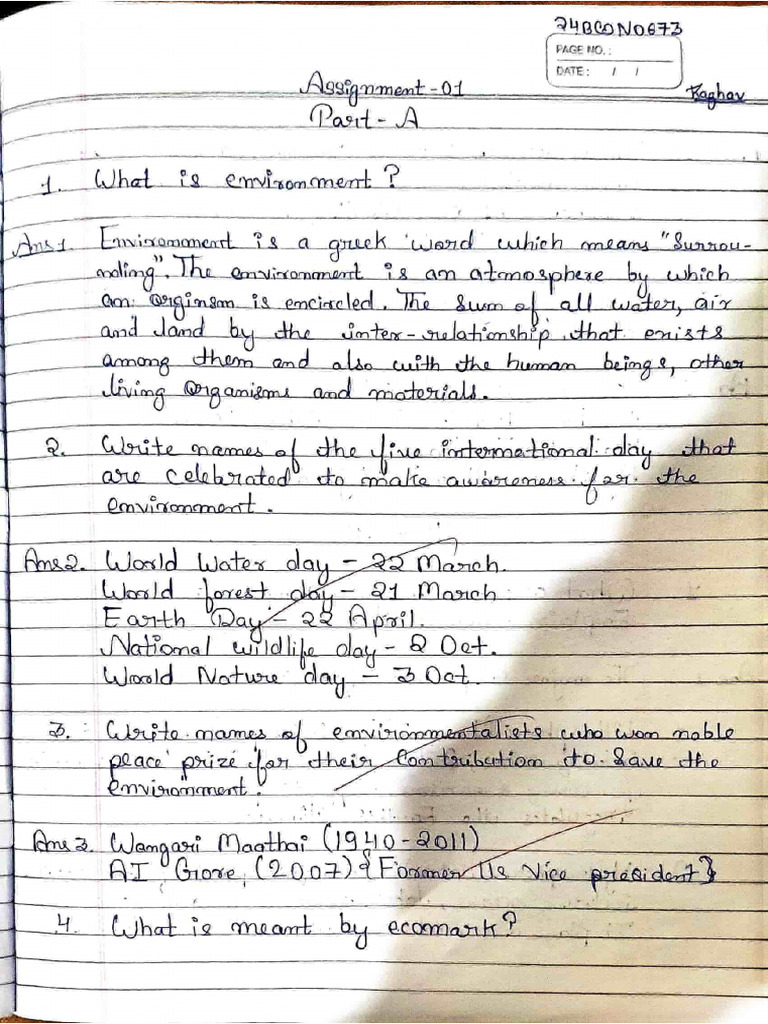 24BCON0673
PAGE NO.:
DATE: / /
Raghav
Assignment-01
Part-A
1. What is environment?
Ans1. Environment is a greek word which means "Surrou-
nding". The environment is an atmosphere by which
an orginsm is encircled. The sum of all water, air
and land by the inter-relationship that exists
among them and also with the human beings, other
living organisms and materials.
2. Write names of the five international day that
are celebrated to make awareness for the
environment.
Ans2. World Water day - 22 March.
World forest day - 21 March
Earth Day - 22 April.
National wildlife day - 2 Oct.
World Nature day - 3 Oct.
3. Write names of environmentalists who won noble
peace prize for their Contribution to Save the
environment.
Ans3. Wangari Maathai (1940-2011)
AI Gore, (2007) {Former Us Vice president}
4. What is meant by ecomark?